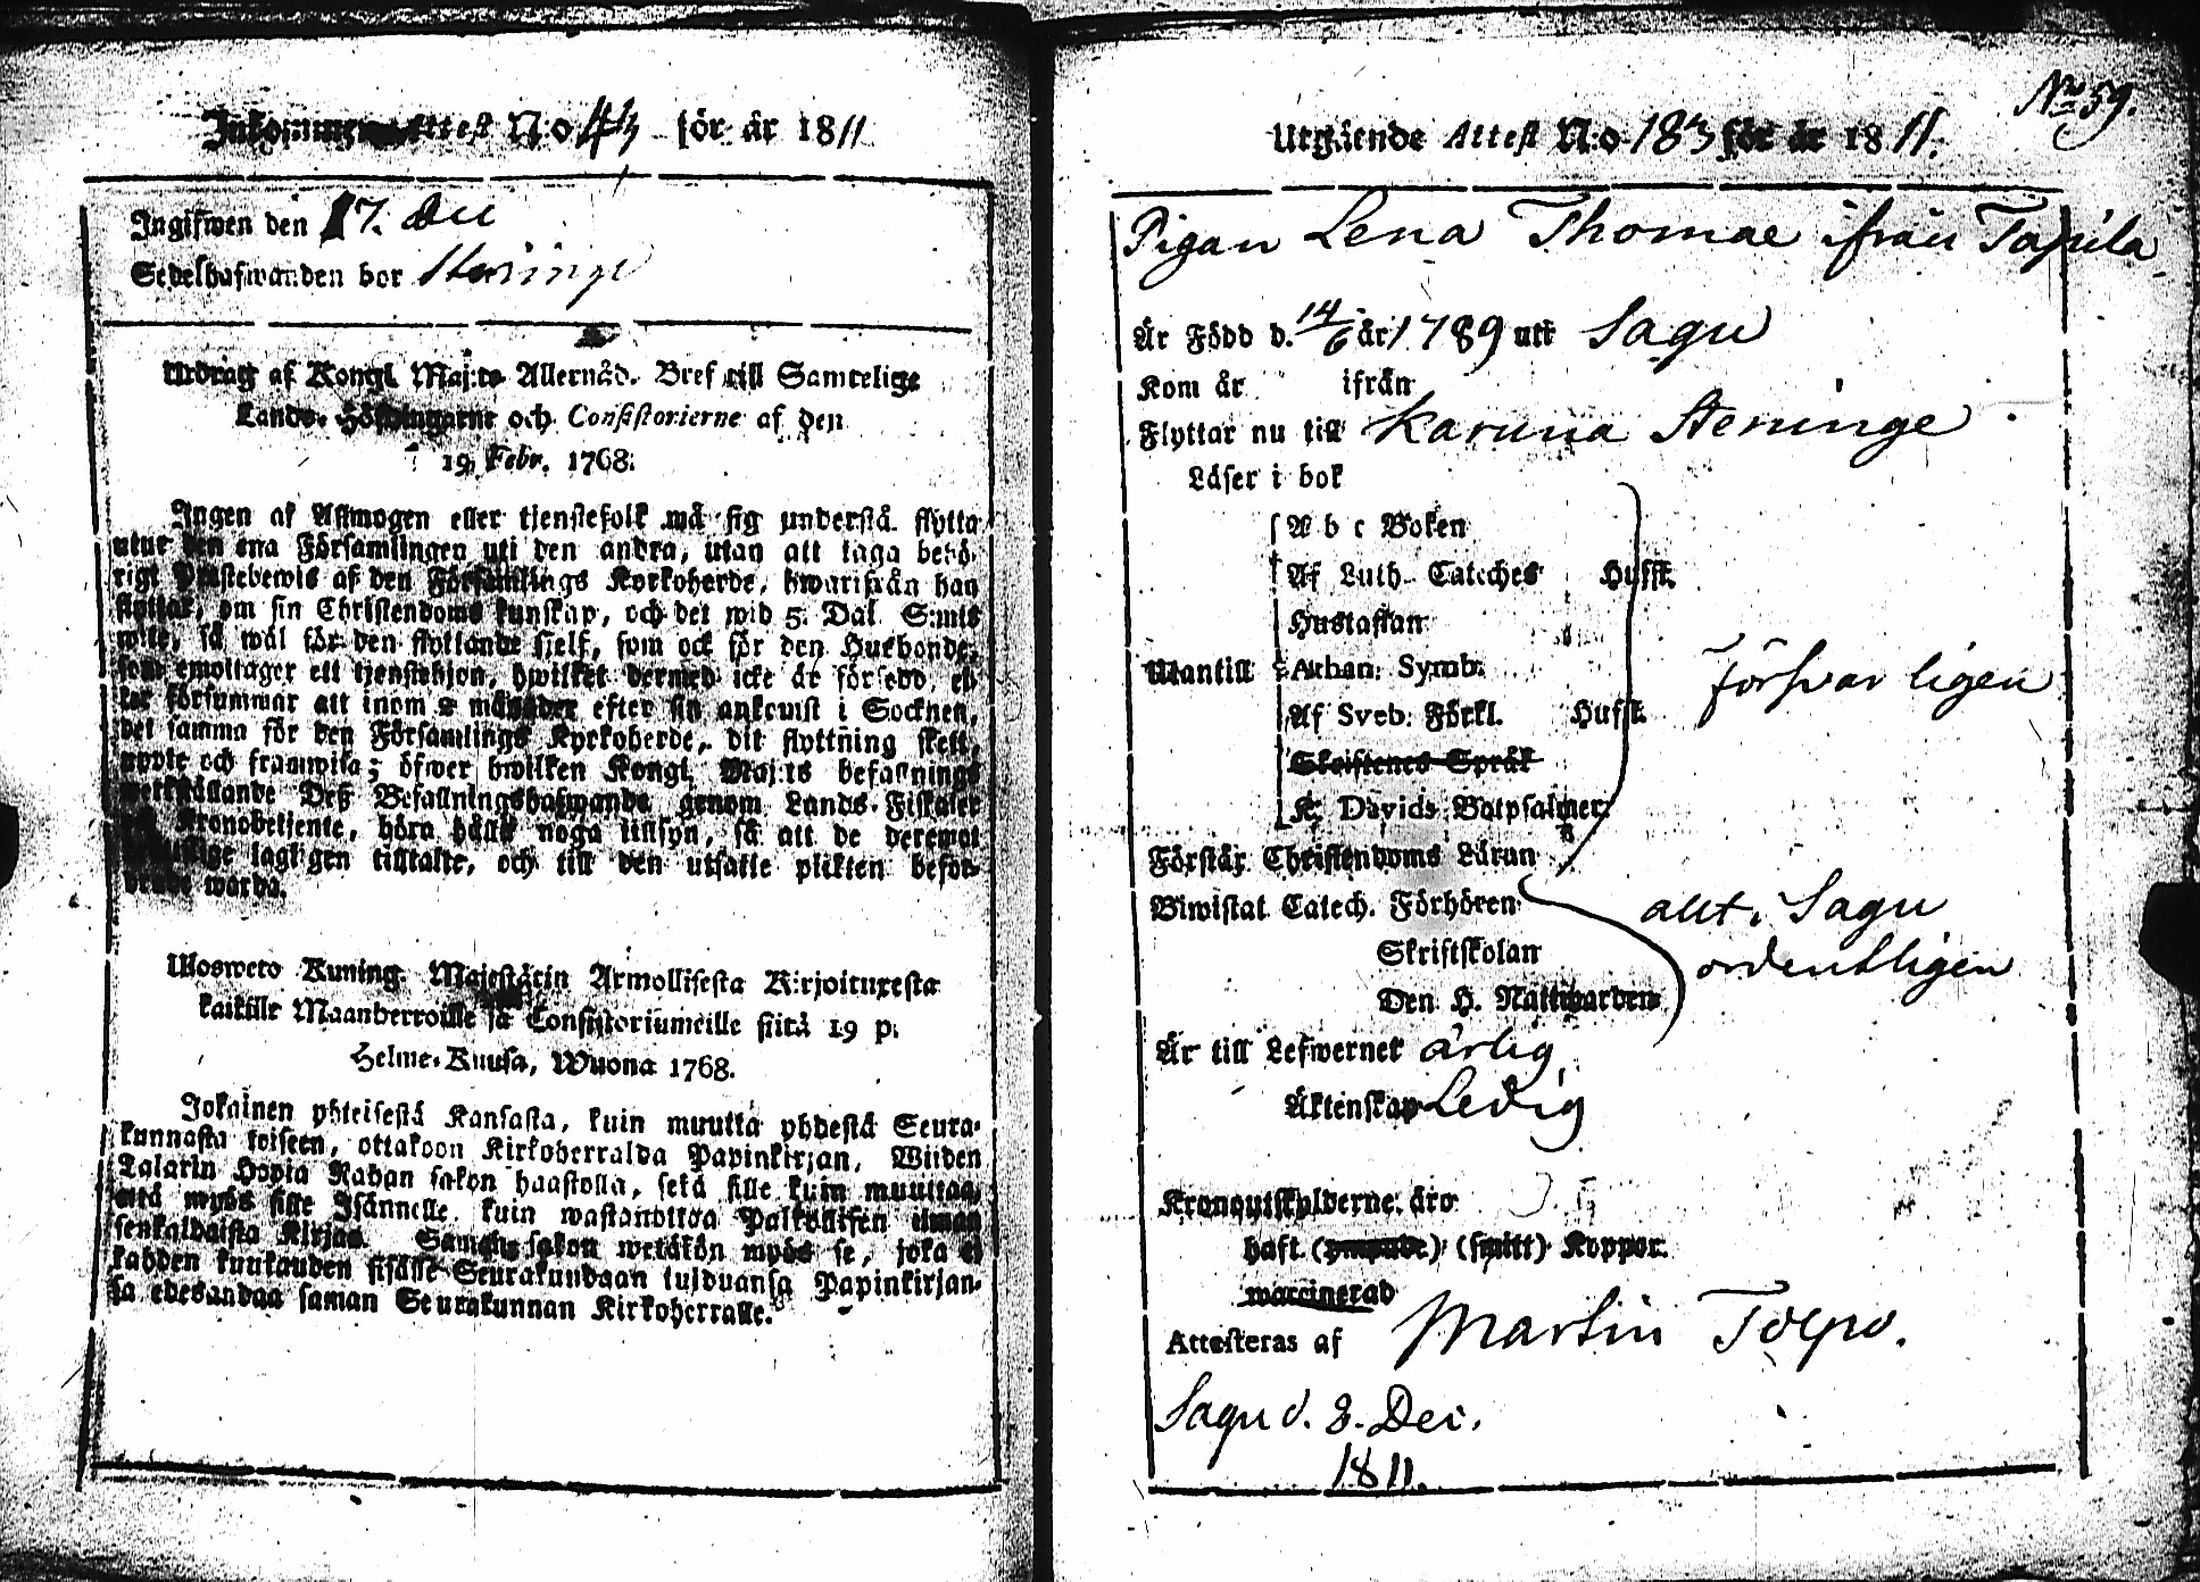 Inkommen Attest N:o 43 för år 1811
Ingifwen den 17. Dec
Sedelhafwanden bor Steninge
Utdrag af Kongl. Maj:ts Allernåd. Bref till Samtelige
Lands-Höfdingarne och Consistorierne af den
19 Febr. 1768.
Ingen af Allmogen eller tjenstefolk må sig understå flytta
utur den ena Församlingen uti den andra, utan att taga behö-
rigt Prästebewis af den Församlings Kyrkoherde, hwarifrån han
flyttar, om sin Christendoms kunskap, och det wid 5. Dal. S:mts
wite, så wäl för den flyttande sjelf, som ock för den Husbonde,
som emottager ett tjenstehjon, hwilket dermed icke är försedd, el-
ler försummar att inom 2 månader efter sin ankomst i Socknen,
det samma för den Församlings Kyrkoherde, dit flyttning skett,
uppte och framwisa; öfwer hwilken Kongl. Maj:ts befallnings
werkställande Deß Befallningshafwande genom Lands-Fiskaler
Kronobetjente, böra hålla noga tillsyn, så att de deremot
lagligen tilltalte, och till den utsatte plikten befor-
drade warda.
Ulosweto Kuning. Majestätin Armollisesta Kirjoituxesta
kaikille Maanherroille ja Consistoriumeille siitä 19 p.
Helme-Kuusa, Wuona 1768.
Jokainen yhteisestä Kansasta, kuin muutta yhdestä Seura-
kunnasta toiseen, ottakoon Kirkoherralda Papinkirjan, Wiiden
Talarin Hopia Rahan sakon haastolla, sekä sille kuin muuttaa,
että myös sille Isännelle, kuin wastanottaa Palkollisen ilman
senkaldaista Kirjaa. Saman sakon wetäkön myös se, joka ei
kahden kuukauden sisälle Seurakundaan tulduansa Papinkirjan-
sa edesandaa saman Seurakunnan Kirkoherralle.
No 59.
Utgående Attest N:o 183 för år 1811.
Pigan Lena Thomae ifrån Tapila
Är Född d. 14/6 år 1789 uti Sagu
Kom år ifrån
Flyttar nu till Karuna Steninge
Läser i bok
A b c Boken
Af Luth. Cateches Hufst.
Hustaflan
Utantill Athan. Symb.
Försvarligen
Af Sveb. Förkl. Hufst.
Skriftenes Språk
K. Davids Botpsalmer
Förstår Christendoms Läran
Biwistat Catech. Förhören allt i Sagu
Skriftskolan ordentligen
Den H. Nattwarden
Är till Lefwernet ärlig
Äktenskap Ledig
Kronoutskylderne äro
haft (ympade) (smitt) Koppor.
waccinerad
Attesteras af Martin Tolpo.
Sagu d. 8. Dec.
1811.